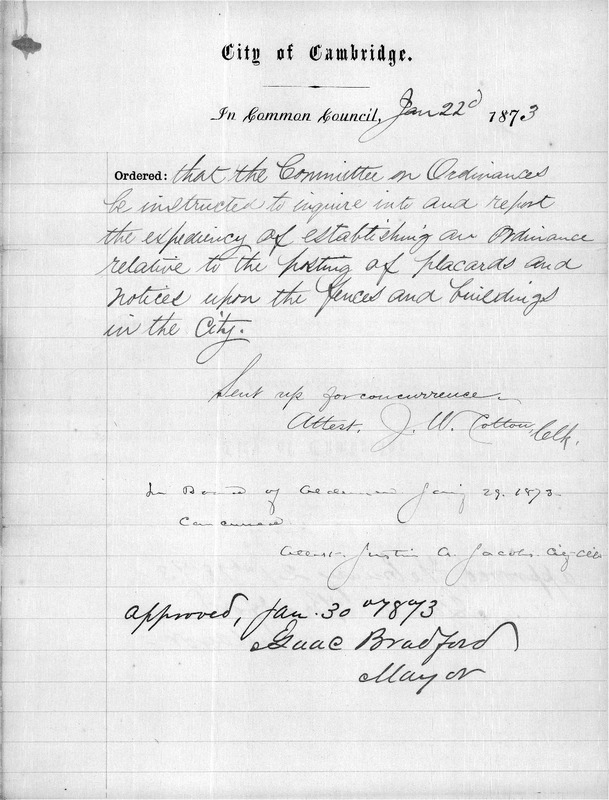 City of Cambridge.
In Common Council, Jan 22d 1873
Ordered: that the Committee on Ordinances
be instructed to inquire into and report
the expediency of establishing an ordinance
relative to the posting of placards and
notices upon the fences and buildings
in the City.
Sent up for concurrence.
Attest. J. W. Cotton, Clk.
In Board of Aldermen Jany 29. 1873.
Concurred
Attest. Justin A. Jacobs. City Clk
approved, Jan. 30 1873
Isaac Bradford
Mayor